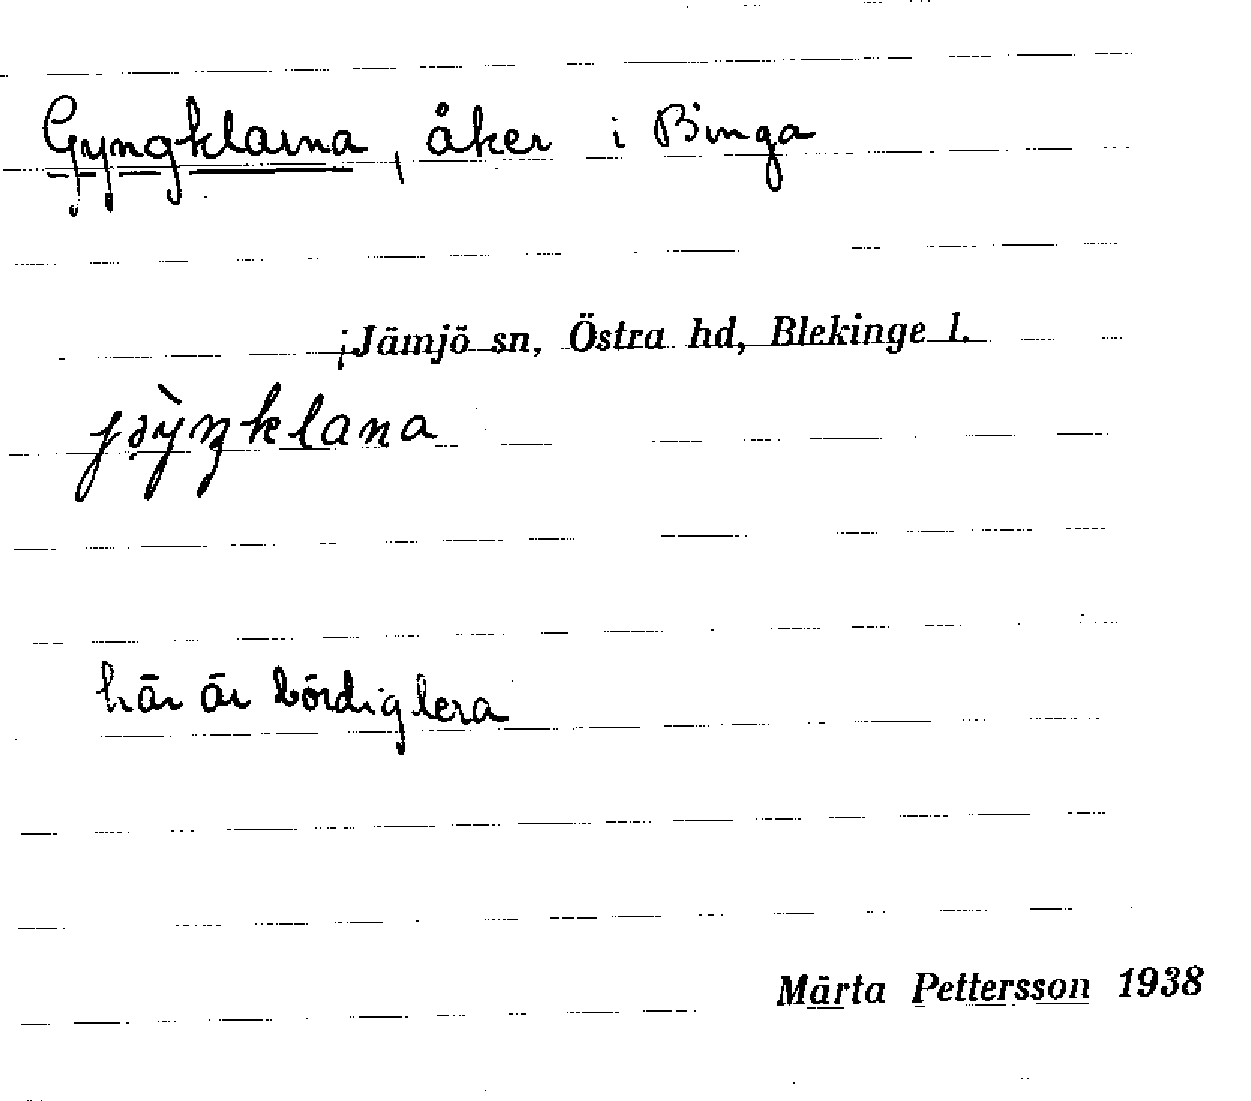 Gyngklarna, åker i Binga
i Jämjö sn, Östra hd, Blekinge l.
här är bördig lera
Märta Pettersson 1938